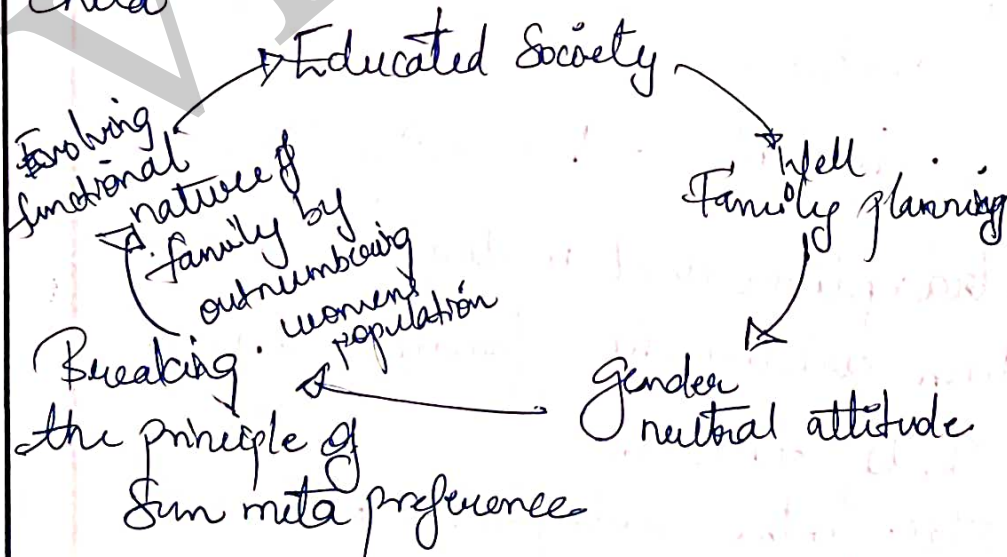 Child
Educated Society
Well
Family planning
Gender
neutral attitude
Breaking
the principle of
Sun meta preference
Evolving
functional
nature of
family by
outnumbering
women
population